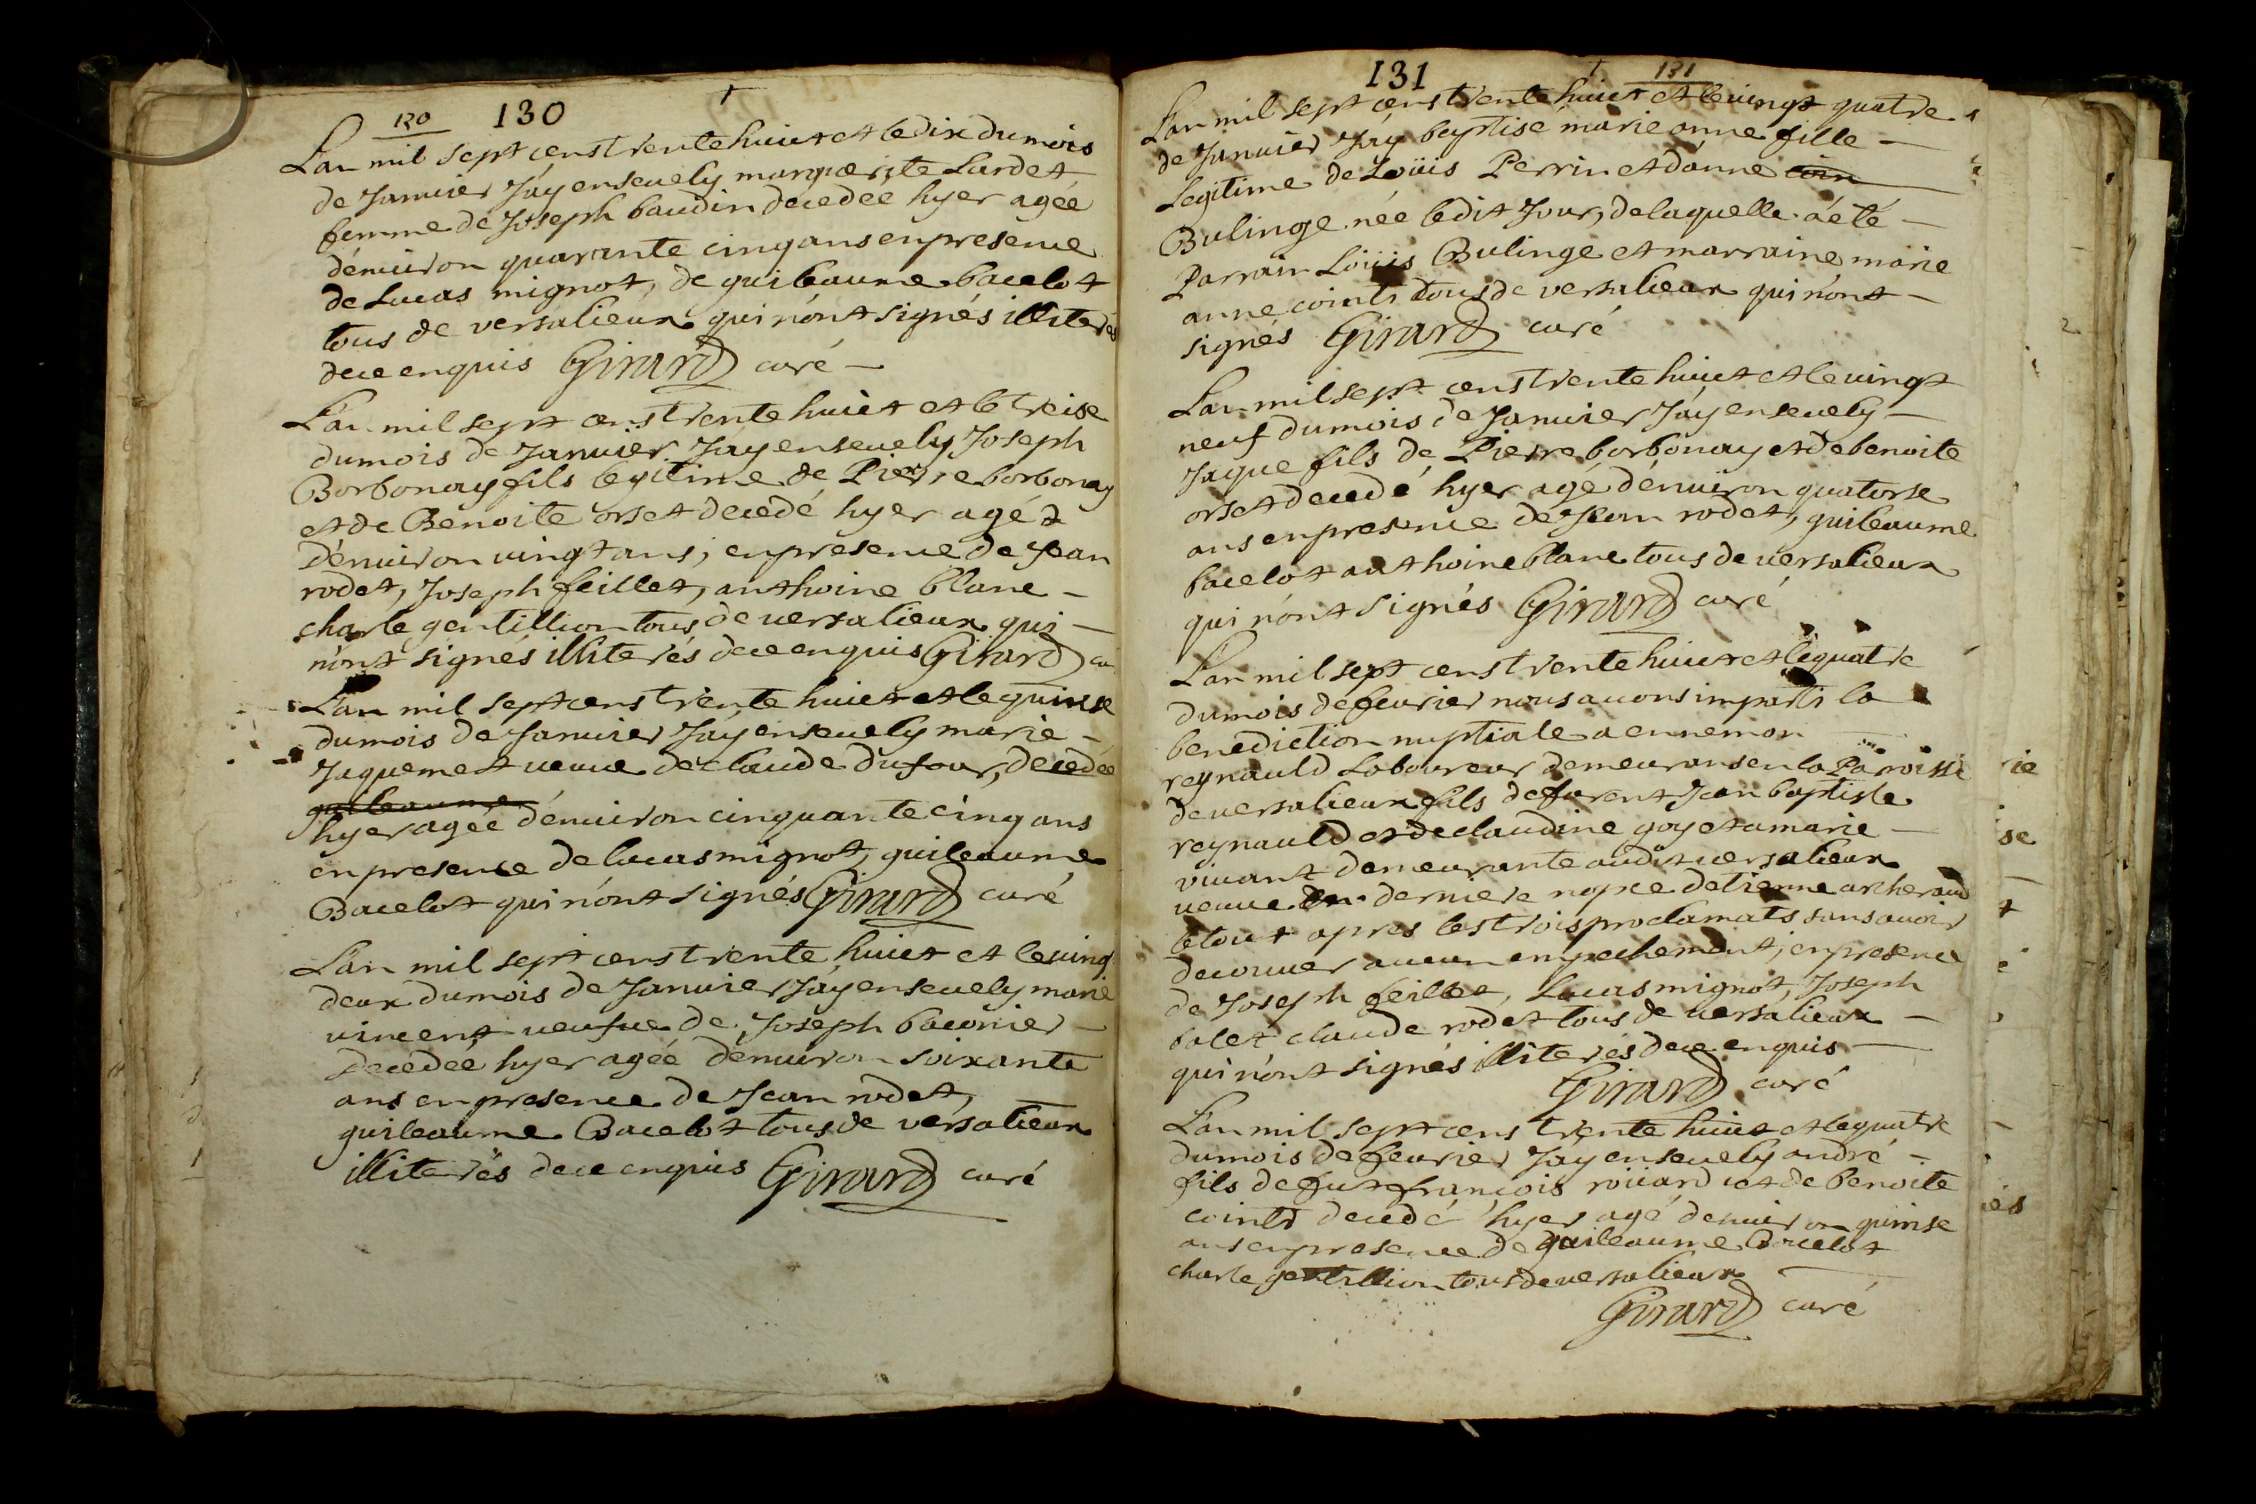 130 130
L'an mil sept cens trente huict et le dix du mois
de Januier J'ay enseuely marguerite Lardet
femme de Joseph baudin decedée hyer agée
d'enuiron quarante cinq ans en presence
de Lucas mignot, de guileaume bacelot
tous de versalieux qui n'ont signés illiterés
de ce enquis Girard curé
L'an mil sept cens trente huict et le treise
du mois de Januier J'ay enseuely Joseph
Borbonay fils legitime de Pierre borbonay
et de Benoite orset decedé hyer agé
d'enuiron vingt ans, en presence de Jean
rodet, Joseph feillet, anthoine blanc
charle gentillion tous de versalieux qui
n'ont signés illiterés de ce enquis Girard cu
L'an mil sept cens trente huict et le quinse
du mois de Januier J'ay enseuely marie
Jaquemet veuue de claude dufour, decedée
guileaume
hyer agée d'enuiron cinquante cinq ans
en presence de lucas mignot, guileaume
Bacelot qui n'ont signés Girard curé
L'an mil sept cens trente huict et le uing
deux du mois de Januier J'ay enseuely marie
vincent ueufue de Joseph baconier
Decedée hyer agée d'enuiron soixante
ans en presence de Jean rodet,
guileaume Bacelot tous de versalieux
illiterés de ce enquis Girard curé
131 131
L'an mil sept cens trente huict et le uingt quatre
de Januier J'ay baptisé marie anne fille
Legitime de Loüis Perrin et d'anne coin
Bulinge née ledit Jour, de laquelle a été
Parrain Loüis Bulinge et marraine marie
anne cointi tous de versalieux qui n'ont
signés Girard curé
L'an mil sept cens trente huict et le uingt
neuf du mois de Januier J'ay enseuely
Jaque fils de Pierre borbonay et de benoite
orset decedé hyer agé d'enuiron quatorse
ans en presence de Jean rodet, guileaume
bacelot anthoine blanc tous de uersalieux
qui n'ont signés Girard curé
L'an mil sept cens trente huict et le quatre
du mois de feurier nous auons imparti la
benediction nuptiale a ennemon
reynauld Laboureur demeurans en la Parroisse
de uersalieux fils de farent Jean baptiste
reynauld et de claudine goy et a marie
viuant demeurante audit uersalieux
ueuue en derniere nopce d'etienne archeraud
le tout apres les trois proclamats sans auoir
decouuer aucun empechement, en presence
de Joseph feillet, Lucas mignot, Joseph
balet claude rodet tous de uersalieux
qui n'ont signés illiterés de ce enquis
Girard curé
L'an mil sept cens trente huict et le quatre
du mois de feurier J'ay enseuely andré
fils de fut françois roüard et de benoite
cointi decedé hyer agé d'enuiron quinse
ans en presence de guileaume Bacelot
charle gentillion tous de uersalieux
Girard curé